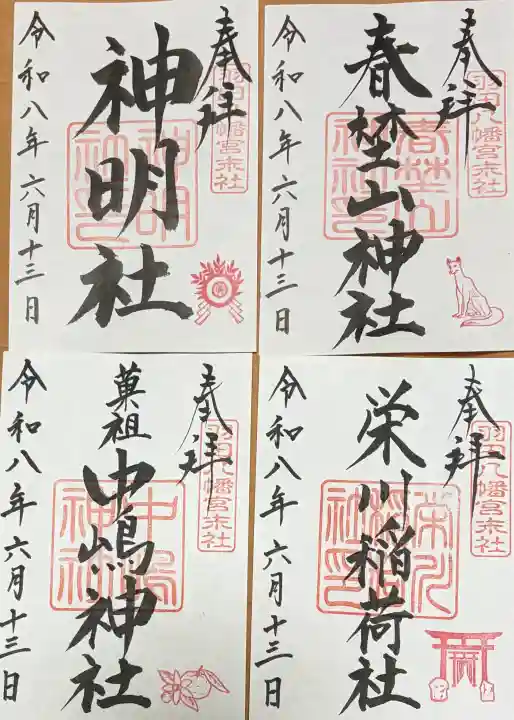 奉拝
羽田八幡宮末社
神明社
令和八年六月十三日
奉拝
羽田八幡宮末社
春埜山神社
春埜山神社印
令和八年六月十三日
奉拝
羽田八幡宮末社
菓祖
中嶋神社
中嶋神社
令和八年六月十三日
奉拝
羽田八幡宮末社
栄川稲荷社
令和八年六月十三日